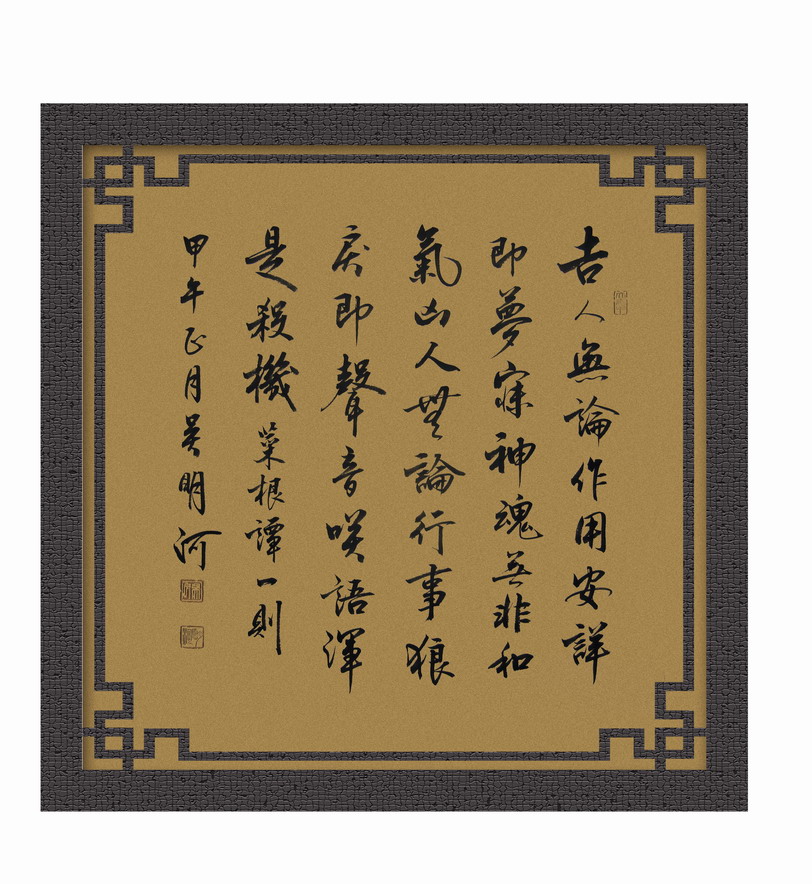 吉人無論作用安詳
即夢寐神魂無非和
氣凶人無論行事狼
戾即聲音咲語渾
是殺機菜根譚一則
甲午正月吴明河